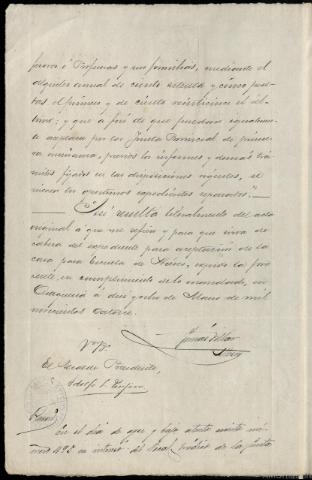 para Profesoras y sus familias, mediante el
alquiler anual de ciento setenta y cinco pese-
tas el primero y de ciento veinticinco el úl-
timo; y que a fin de que puedan igualmente
aceptarse por la Junta Provincial de prime-
ra enseñanza, previos los informes y demás trá-
mites fijados en las disposiciones vigentes, se
inicien los oportunos expedientes separados."
Así resulta literalmente del acta
original a que me refiero y para que sirva de
cabeza del expediente para aceptación de la
casa para Escuela de expido la pre-
sente, en cumplimiento de lo mandado, en
a diez y ocho de Marzo de mil
novecientos catorce.
VºBº
El Alcalde Presidente,
Adolfo
En el día de ayer y bajo atento oficio nú-
mero 493 se interesó del Vocal médico de la Junta